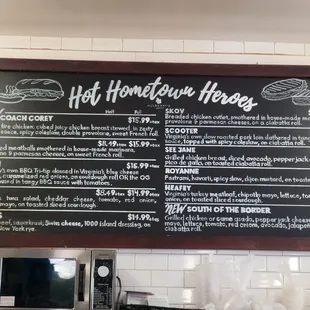 Hot Hometown Heroes
Half Full
COACH COREY $15.99
fire chicken: cubed juicy chicken breast stewed in zesty
sauce, spicy coleslaw, double provolone, sweet French roll.
$11.49 $15.99
meatballs smothered in house-made marinara,
& parmesan cheese, on sweet French roll.
$16.99
own BBQ Tri-tip
caramelized red onions, on sourdough roll OR the OG
in tangy BBQ sauce with tomatoes.
$14.99
tuna salad, cheddar cheese, tomato, red onion,
mayo, on toasted sliced sourdough.
$14.99
beef, sauerkraut, Swiss cheese, 1000 island dressing, on
New York rye.
SKOV
Breaded chicken cutlet, smothered in house-made
provolone & parmesan cheeses, on a ciabatta roll.
SCOOTER
Virginia's own slow roasted pork loin slathered in
sauce, topped with spicy coleslaw, on ciabatta roll.
SEE JANE
Grilled chicken breast, sliced avocado, pepper jack
pico de gallo, on toasted ciabatta roll.
ROYANNE
Pastrami, havarti, spicy slaw, dijon mustard, on toasted
NEAFEY
Virginia's turkey meatloaf, chipotle mayo, lettuce,
onion, on toasted sliced sourdough.
NEW SOUTH OF THE BORDER
Grilled chicken or carne asada, pepper jack cheese
mayo, lettuce, tomato, red onion, avocado, jalapeño
ciabatta roll.